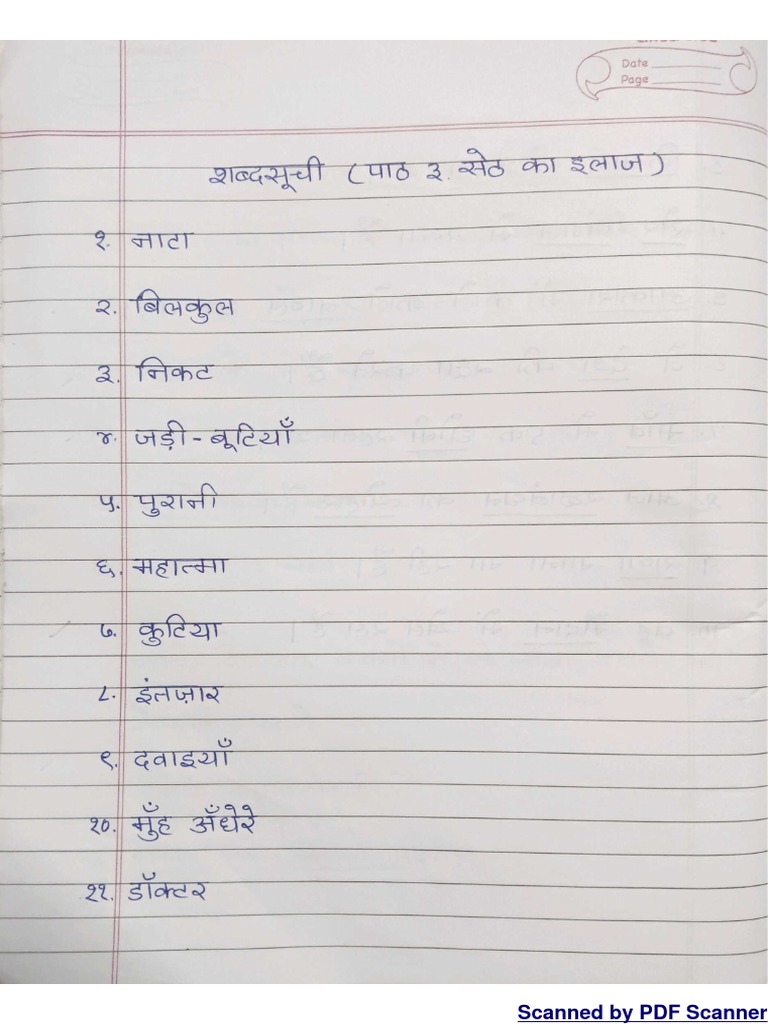 Date
Page
शब्दसूची (पाठ ३. सेठ का इलाज)
१. नाटा
२. बिलकुल
३. निकट
४. जड़ी - बूटियाँ
५. पुरानी
६. महात्मा
७. कुटिया
८. इंतज़ार
९. दवाइयाँ
१०. मुँह अँधेरे
११. डॉक्टर
Scanned by PDF Scanner